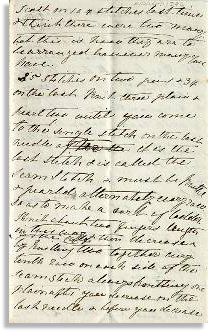 cast on so of stitches last time
I think there were two many
but this is how they are to
be arranged however many you
have
25 stitches on two pins & 34
on the last Knit three plain &
pearl two until you come
to the single stitch on the last
needle it is the
last stitch & is called the
Seam stitch & must be knitted
& pearled alternately every row
so as to make a sort of ladder
Knit about two fingers length
in this way then decrease
by knitting two together every
tenth row on each side of the
seam stitch always knitting one
plain after you decrease on the
last needle & before you decrease